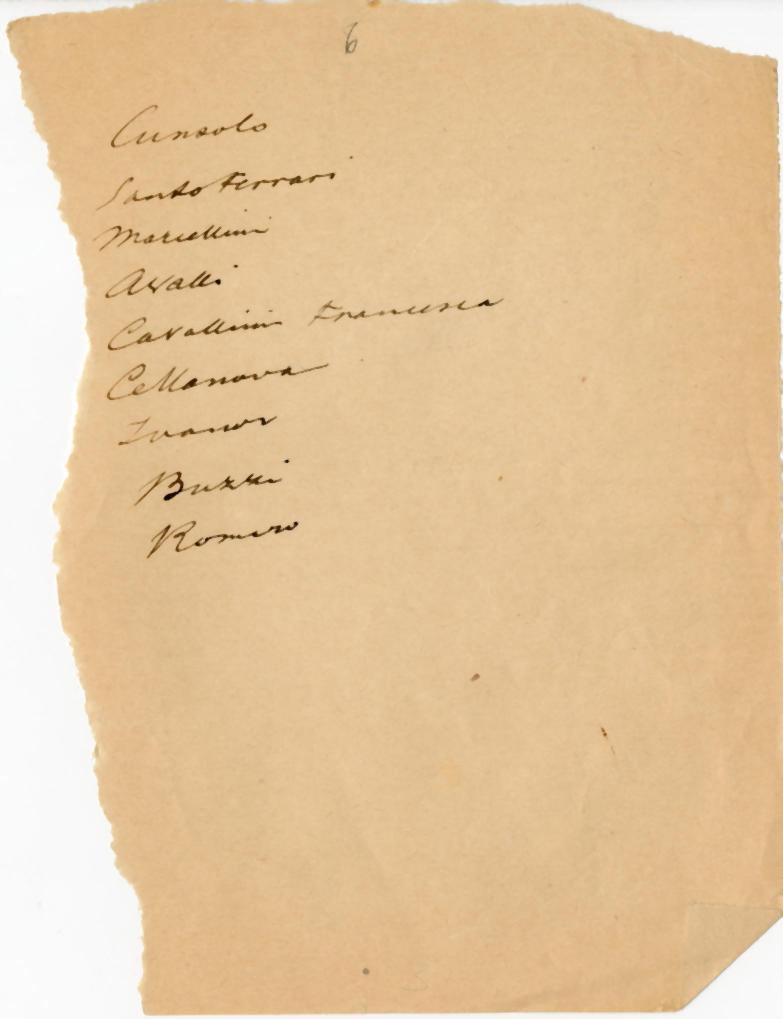 6
Cunsolo
Santo Ferrari
Marcellini
Avalli
Cavallini Francesca
Cellanova
Ivanov
Buzzi
Romero